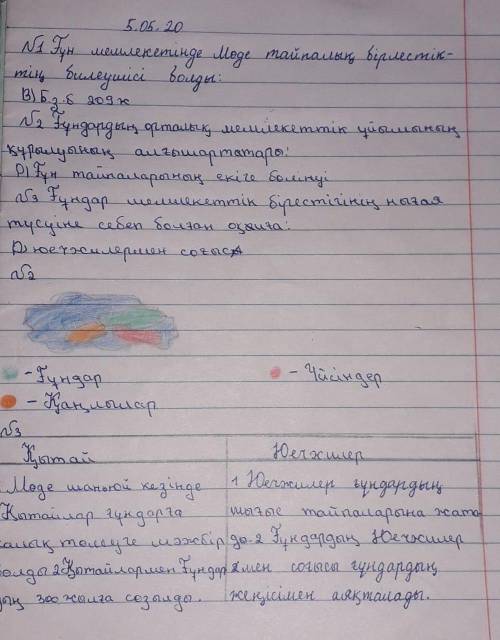 5.05.20
№1 Ғұн мемлекетінде Мөде тайпалық бірлестік-
тің билеушісі болды:
В) Б.з.б 209ж
№2 Ғұндардың орталық мемлекеттік ұйымының
құрылуының алғышарттары:
Д) Ғұн тайпаларының екіге бөлінуі
№3 Ғұндар мемлекеттік бірлестігінің нығая
түсуіне себеп болған оқиға:
Д) юечжилермен соғыс
№2
- Ғұндар
- Үйсіндер
- Қаңлылар
№3
Қытай
Юечжилер
Мөде шаньюй кезінде
Қытайлар ғұндарға
салық төлеуге мәжбір
болды 2 Қытайлармен Ғұндар
дың 300 жылға созылды.
1 Юечжилер ғұндардың
шығыс тайпаларына жата-
ды. 2 Ғұндардың Юечжилер
мен соғысы ғұндардың
жеңісімен аяқталады.